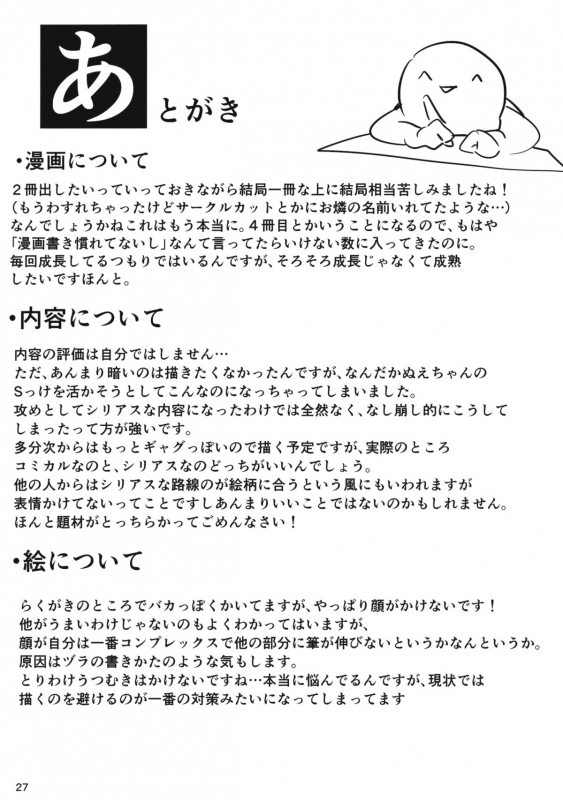 あとがき
・漫画について
２冊出したいっていっておきながら結局一冊な上に結局相当苦しみましたね！
（もうわすれちゃったけどサークルカットとかにお燐の名前いれてたような…）
なんでしょうかねこれはもう本当に。４冊目とかいうことになるので、もはや
「漫画書き慣れてないし」なんて言ってたらいけない数に入ってきたのに。
毎回成長してるつもりではいるんですが、そろそろ成長じゃなくて成熟
したいですほんと。
・内容について
内容の評価は自分ではしません…
ただ、あんまり暗いのは描きたくなかったんですが、なんだかぬえちゃんの
Sっけを活かそうとしてこんなのになっちゃってしまいました。
攻めとしてシリアスな内容になったわけでは全然なく、なし崩し的にこうして
しまったって方が強いです。
多分次からはもっとギャグっぽいので描く予定ですが、実際のところ
コミカルなのと、シリアスなのどっちがいいんでしょう。
他の人からはシリアスな路線のが絵柄に合うという風にもいわれますが
表情かけてないってことですしあんまりいいことではないのかもしれません。
ほんと題材がとっちらかってごめんなさい！
・絵について
らくがきのところでバカっぽくかいてますが、やっぱり顔がかけないです！
他がうまいわけじゃないのもよくわかってはいますが、
顔が自分は一番コンプレックスで他の部分に筆が伸びないというかなんというか。
原因はヅラの書きかたのような気もします。
とりわけうつむきはかけないですね…本当に悩んでるんですが、現状では
描くのを避けるのが一番の対策みたいになってしまってます
27